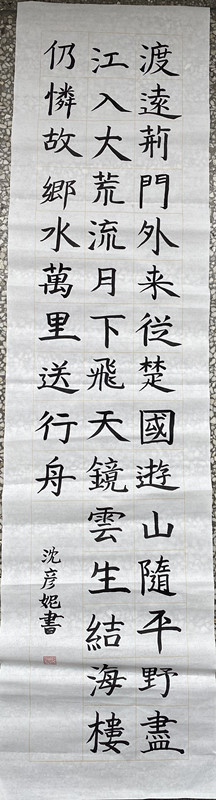 渡遠荊門外来從楚國遊山隨平野盡
江入大荒流月下飛天鏡雲生結海樓
仍憐故鄉水萬里送行舟
沈彦妮書